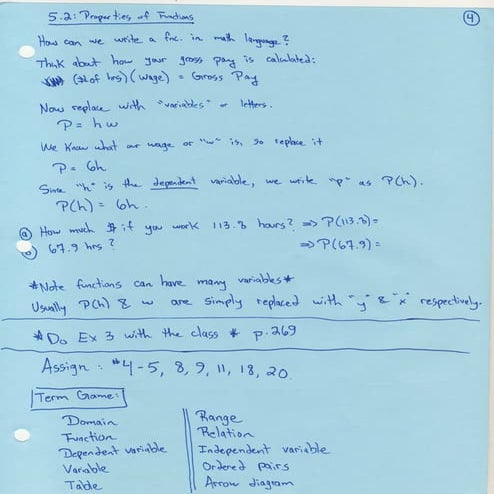 5.2: Properties of Functions
4
How can we write a fnc. in math language?
Think about how your gross pay is calculated:
(# of hrs)(wage) = Gross Pay
Now replace with "variables" or letters.
P = hw
We know what our wage or "w" is, so replace it
P = 6h
Since "h" is the dependent variable, we write "p" as P(h).
P(h) = 6h.
a) How much $ if you work 113.8 hours? ⇒ P(113.8) =
b) 67.9 hrs? ⇒ P(67.9) =
*Note functions can have many variables*
Usually P(h) & w are simply replaced with "y" & "x" respectively.
* Do Ex 3 with the class * p.269
Assign: #4-5, 8, 9, 11, 18, 20.
Term Game:
Domain Range
Function Relation
Dependent variable Independent variable
Variable Ordered pairs
Table Arrow diagram